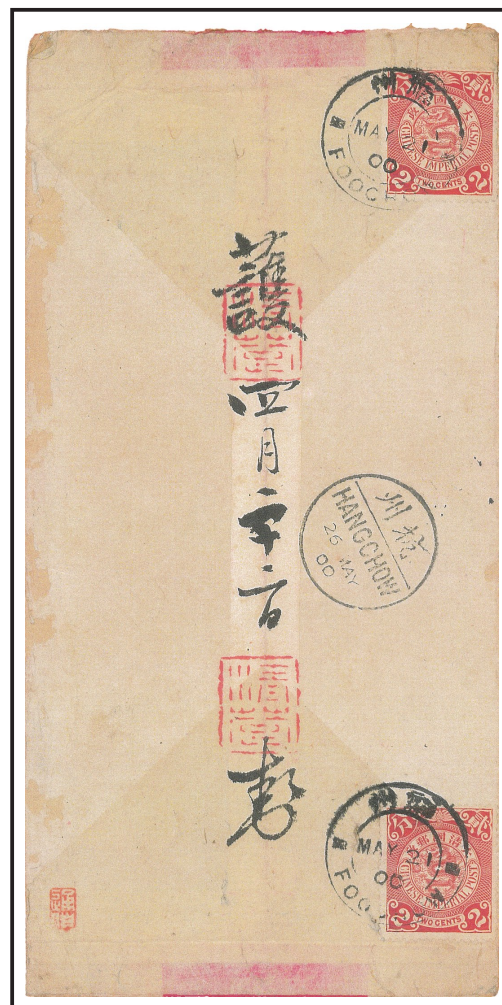 福州
MAY 21
00
FOOCHOW
大清國郵政
貳分
CHINESE IMPERIAL POST
2 TWO CENTS 2
護
四月二十三日
杭州
HANGCHOW
26 MAY
00
福州
MAY 21
00
FOOCHOW
大清國郵政
貳分
CHINESE IMPERIAL POST
2 TWO CENTS 2